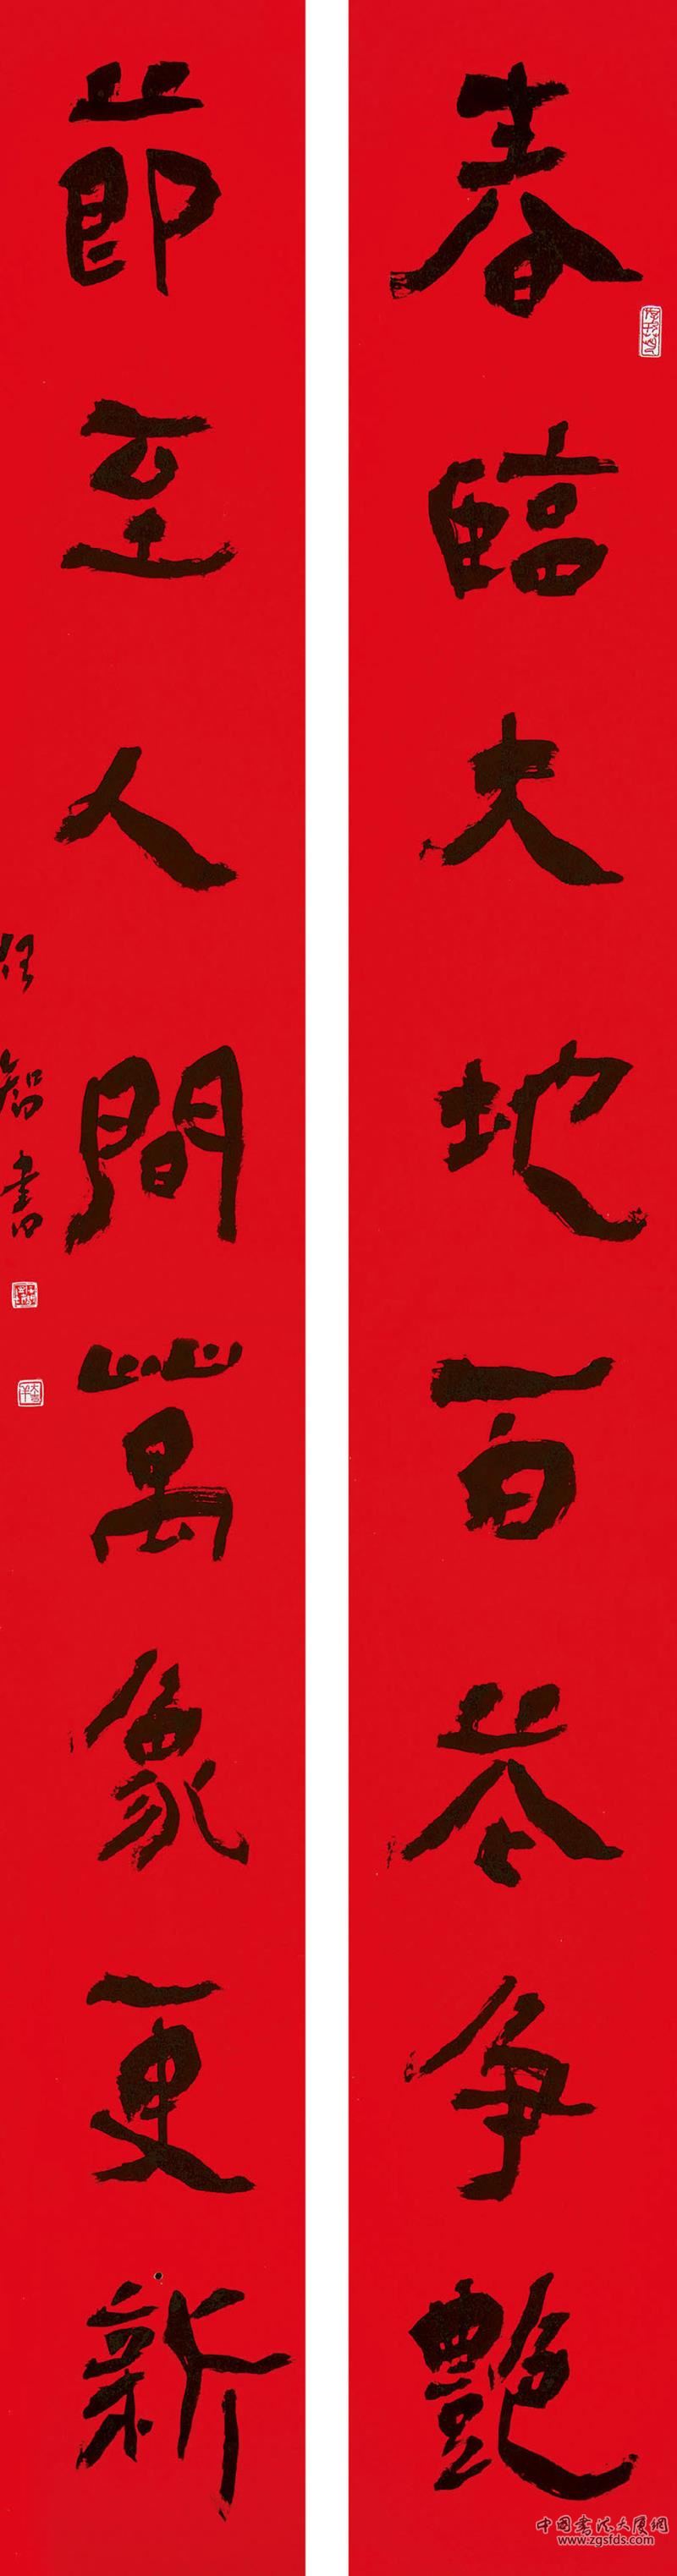 春臨大地百花争艷
節至人間萬象更新
智書
中國書法大廈網
www.zgsfds.com